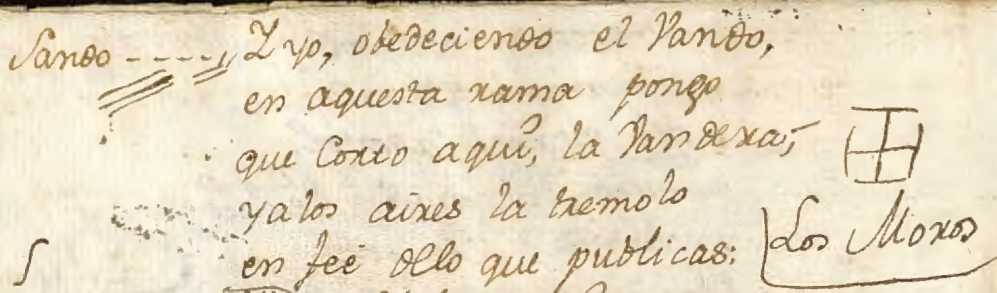 Sando ----- Y yo, obedeciendo el Vando,
en aquesta rama pongo
que Corto aqui, la Vandera,
ya los aires la tremolo
en feé dello que publicas:
Los Moros